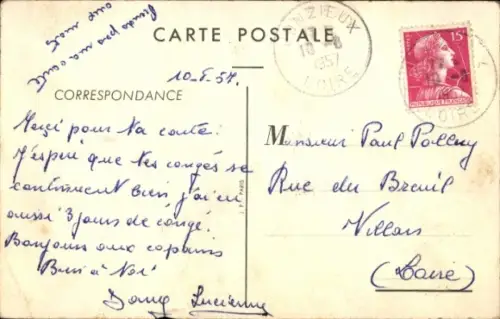 CARTE POSTALE
UNZIEUX
10-8
1957
LOIRE
15F
POSTES
10-8-57.
CORRESPONDANCE
Merci pour ta carte.
J'espère que tes congés se
continuent bien j'ai eu
aussi 3 jours de congé.
Bonjour aux copains
Bien à toi
Lucienne
Monsieur Paul
Rue du Breuil
Villars
(Loire)
J. P. PARIS